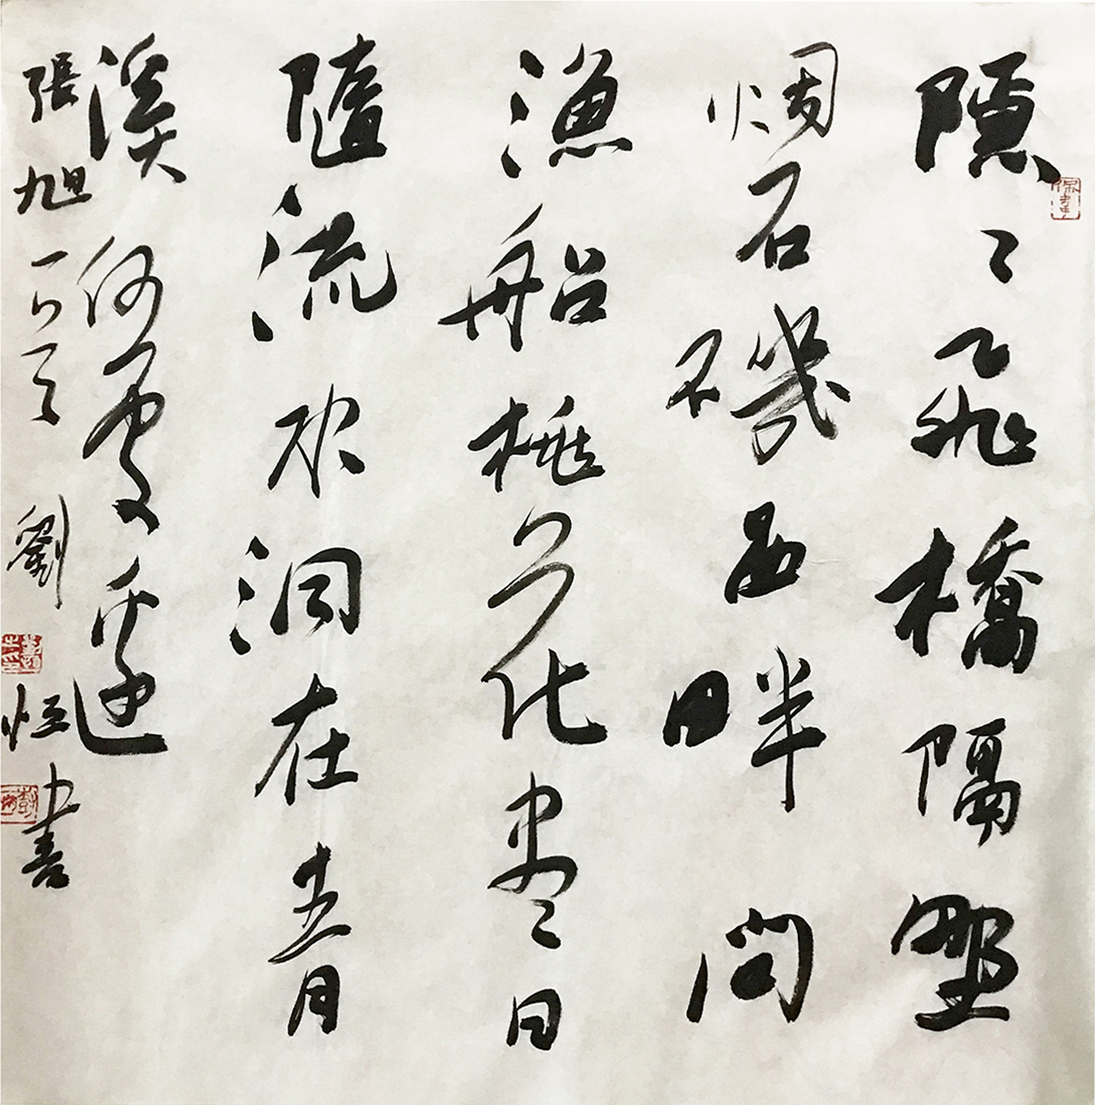 隱〻飛橋隔野
烟石磯西畔問
漁船桃花盡日
隨流水洞在青
溪何處邊
張旭 劉恒書